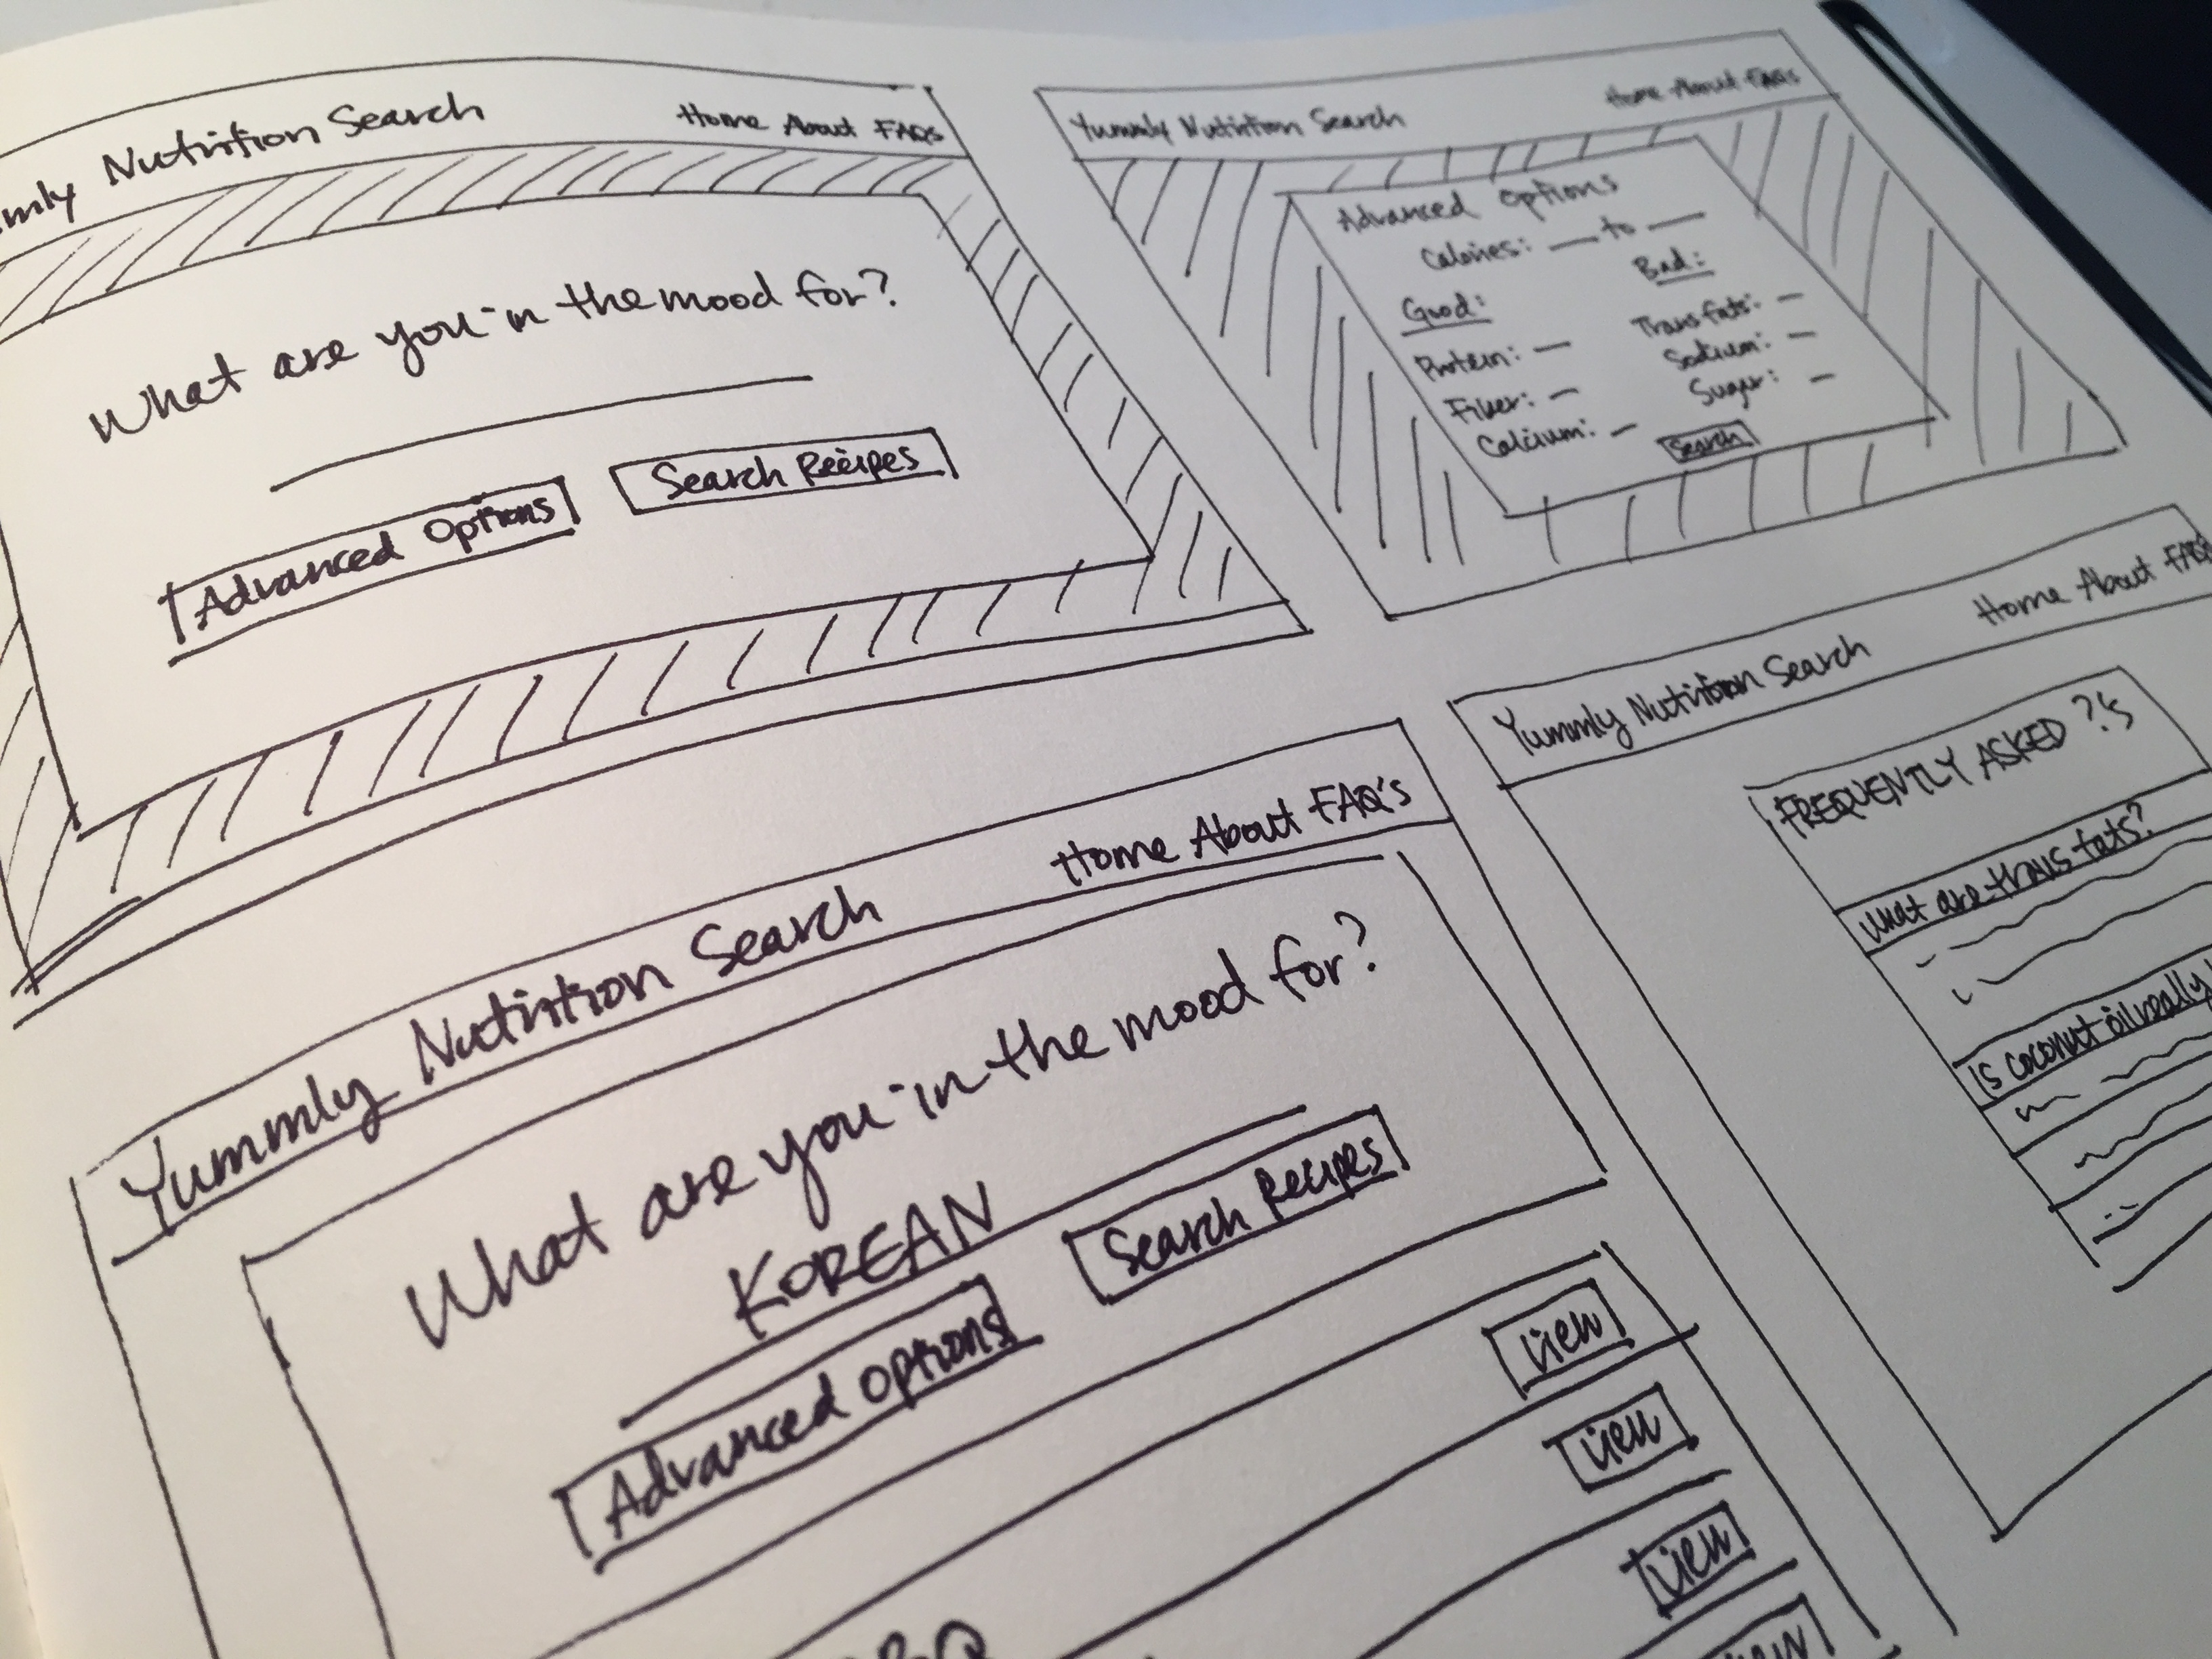 Nutrition Search Home About FAQs
What are you in the mood for?
Advanced Options Search Recipes
Yummly Nutrition Search Home About FAQs
Advanced Options
Calories: to
Good: Bad:
Protein: Trans fats:
Fiber: Sodium:
Calcium: Sugar:
Search
Yummly Nutrition Search Home About FAQ's
What are you in the mood for?
KOREAN
Advanced options Search Recipes
View
View
View
Yummly Nutrition Search Home About
FREQUENTLY ASKED ?'s
What are trans fats?
Is coconut oil really